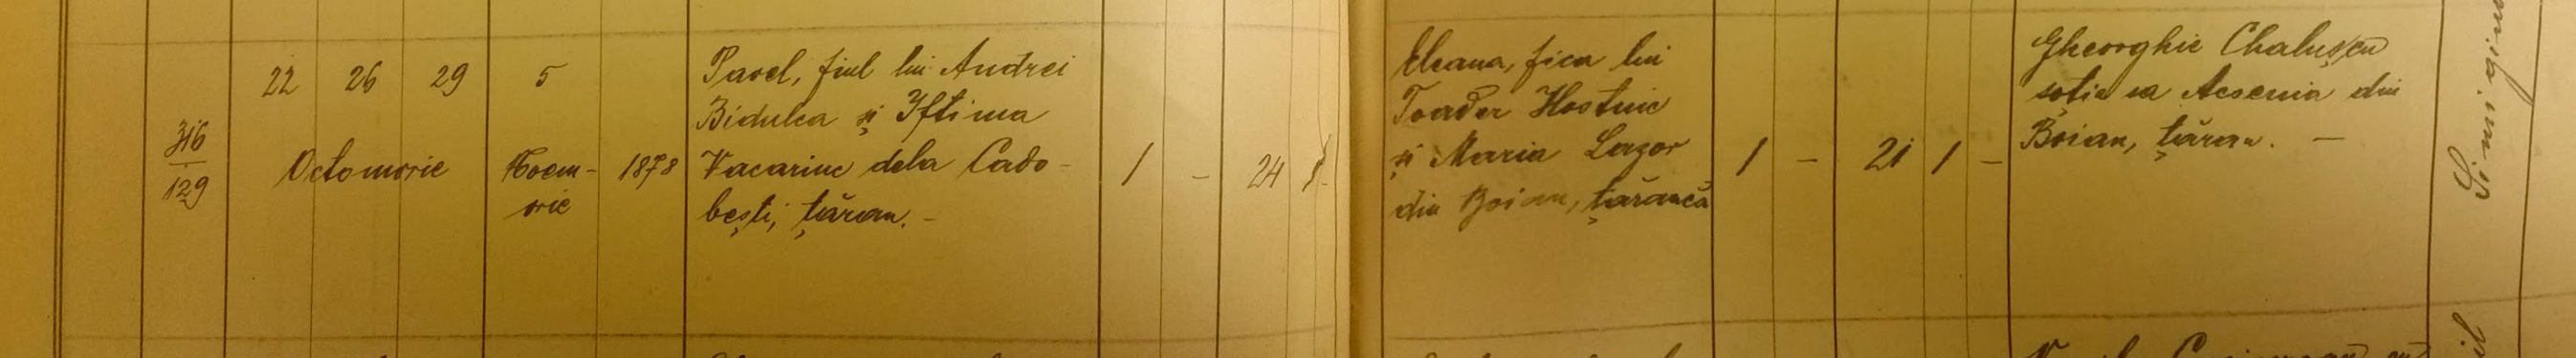 316
129
22 26 29
Octomvrie
5
Noem-
vrie
1878
Pavel, fiul lui Andrei
Bidulca și Iftima
Vacariuc dela Cado-
bești, țăran. -
1 - 24 1 -
Ileana, fica lui
Toader Hostiuc
și Maria Lazor
din Boian, țărancă
1 - 21 1 -
Gheorghie Chalușcu
soția sa Acsenia din
Boian, țăran. -